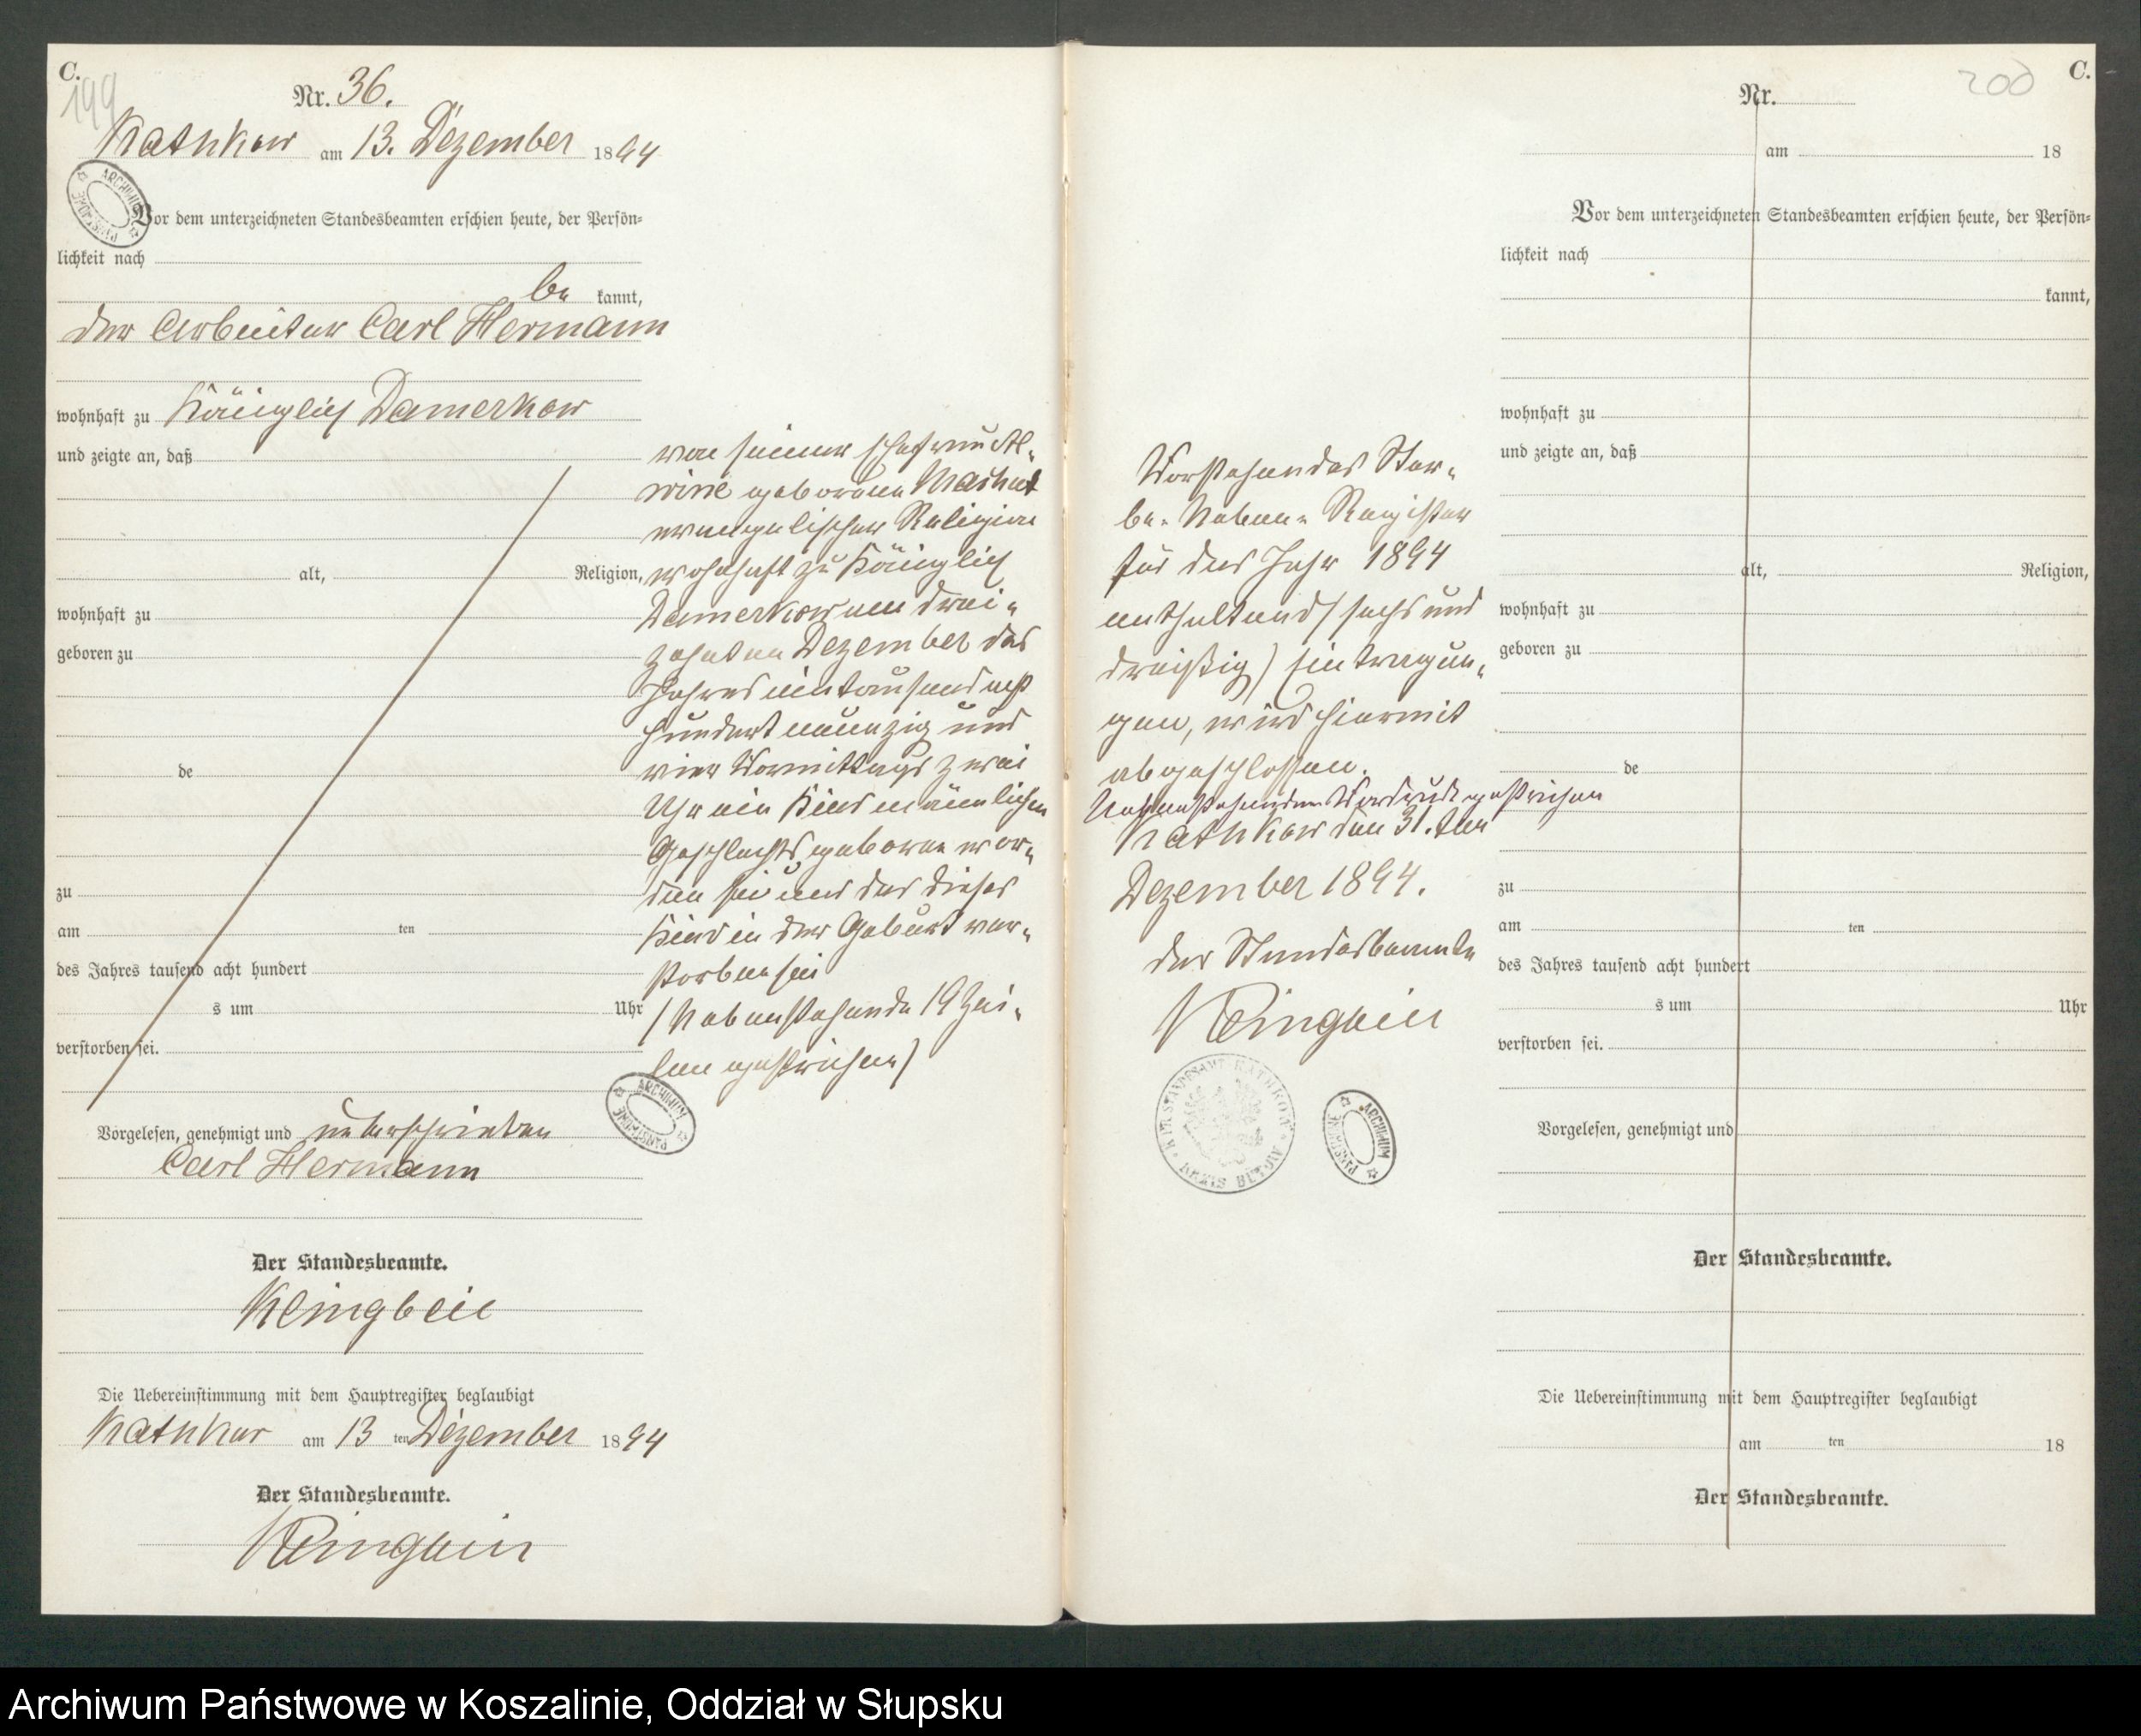 C.
199
Nr. 36.
Kathkow am 13. Dezember 1894
Vor dem unterzeichneten Standesbeamten erschien heute, der Persön=
lichkeit nach
be kannt,
der Arbeiter Carl Hermann
wohnhaft zu Königlich Damerkow
und zeigte an, daß
alt, Religion,
wohnhaft zu
geboren zu
de
zu
am ten
des Jahres tausend acht hundert
s um Uhr
verstorben sei.
von seiner Ehefrau Al=
wine geborene
evangelischer Religion
wohnhaft zu Königlich
Damerkow am drei=
zehnten Dezember des
Jahres eintausend acht
hundert neunzig und
vier Vormittags zwei
Uhr ein Kind männlichen
Geschlechts geboren wor=
den sei und das dieses
Kind in der Geburt ver=
storben sei
(Nebenstehende 19 Zei=
len gestrichen)
Vorgelesen, genehmigt und unterschrieben
Carl Hermann
Der Standesbeamte.
Klingbeil
Die Uebereinstimmung mit dem Hauptregister beglaubigt
Kathkow am 13 ten Dezember 1894
Der Standesbeamte.
Klingbeil
ARCHIWUM PAŃSTWOWE
C.
200
Vorstehendes Ster=
be= Neben= Register
für das Jahr 1894
enthaltend (sechs und
dreißig) Eintragun=
gen, wird hiermit
abgeschlossen.
Nebenstehenden Vordruck gestrichen
Kathkow den 31. ten
Dezember 1894.
Der Standesbeamte
Klingbeil
ARCHIWUM PAŃSTWOWE
Nr.
am 18
Vor dem unterzeichneten Standesbeamten erschien heute, der Persön=
lichkeit nach
kannt,
wohnhaft zu
und zeigte an, daß
alt, Religion,
wohnhaft zu
geboren zu
de
zu
am ten
des Jahres tausend acht hundert
s um Uhr
verstorben sei.
Vorgelesen, genehmigt und
Der Standesbeamte.
Die Uebereinstimmung mit dem Hauptregister beglaubigt
am ten 18
Der Standesbeamte.
Archiwum Państwowe w Koszalinie, Oddział w Słupsku